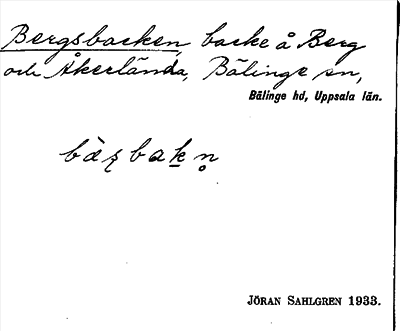 Bergsbacken, backe å Berg
och Åkerlända, Bälinge sn,
Bälinge hd, Uppsala län.
bæ̀ʂbak̠n̥
JÖRAN SAHLGREN 1933.